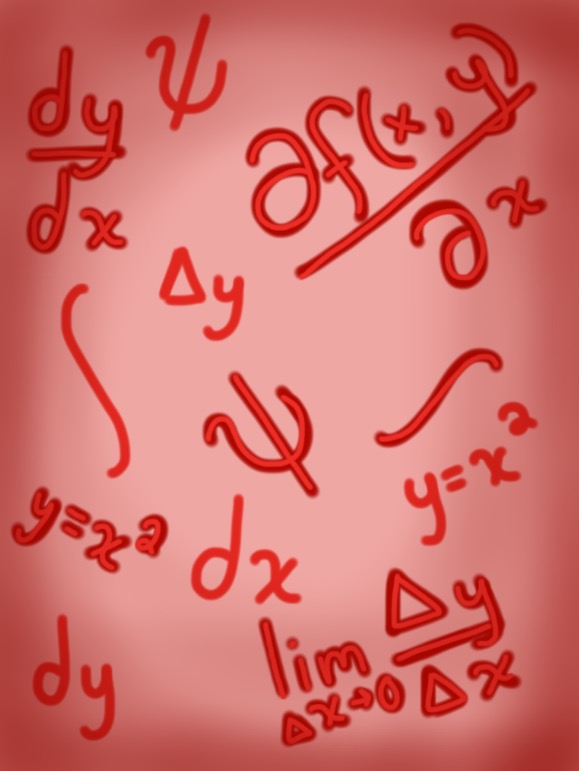 dy/dx
ψ
∂f(x,y)/∂x
Δy
∫
ψ
∫
y=x²
y=x²
dx
dy
lim Δx→0 Δy/Δx